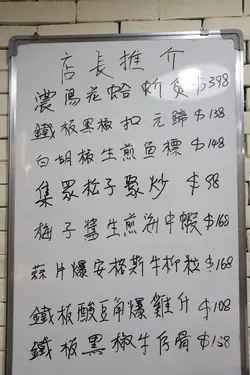 店長推介
濃湯花蛤蚧煲$398
鐵板黑椒扣元蹄$138
白胡椒生煎魚標$148
集眾松子聚炒$98
梅子醬生煎海中蝦$168
蒜片爆安格斯牛柳粒$168
鐵板酸豆角爆雞什$108
鐵板黑椒牛仔骨$138